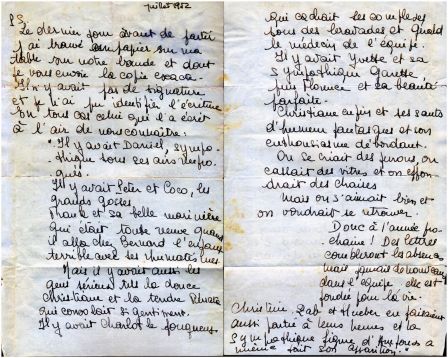 juillet 1952
PS
Le dernier jour avant de partir
j'ai trouvé un papier sur ma
table sur notre bande et dont
je vous envoie la copie exacte.
Il n'y avait pas de signature
et je n'ai pu identifier l'écriture
En tous cas celui qui l'a écrit
à l'air de nous connaître:
"Il y avait Daniel, sympa-
thique sous ses airs
Il y avait Peter et Coco, les
grands gosses
et sa belle marinière
qui était toute neuve quand
il alla chez Bernard l'enfant
terrible avec ses rhumatismes.
Mais il y avait aussi les
gens sérieux tels la douce
Christiane et la tendre Renata
qui consolait si gentiment.
Il y avait Charlot le fougueux
qui cachait les complexes
sous des bravades et quand
le médecin de l'équipe.
Il y avait Yvette et sa
sympathique
puis Florence et sa beauté
parfaite.
Christiane enfin et ses sauts
d'humeur fantasques et son
enthousiasme débordant.
On se criait des jurons, on
cassait des vitres et on effon-
drait des chaises
Mais on s'aimait bien et
on voudrait se retrouver.
Donc à l'année pro-
chaine! Des lettres
combleront les absences
mais jamais de nouveau
dans l'équipe elle est
fondée pour la vie.
Christian, et Hubert en faisaient
aussi partie à leurs heures et la
sympathique figure d'Alfonso a
même fait son apparition."